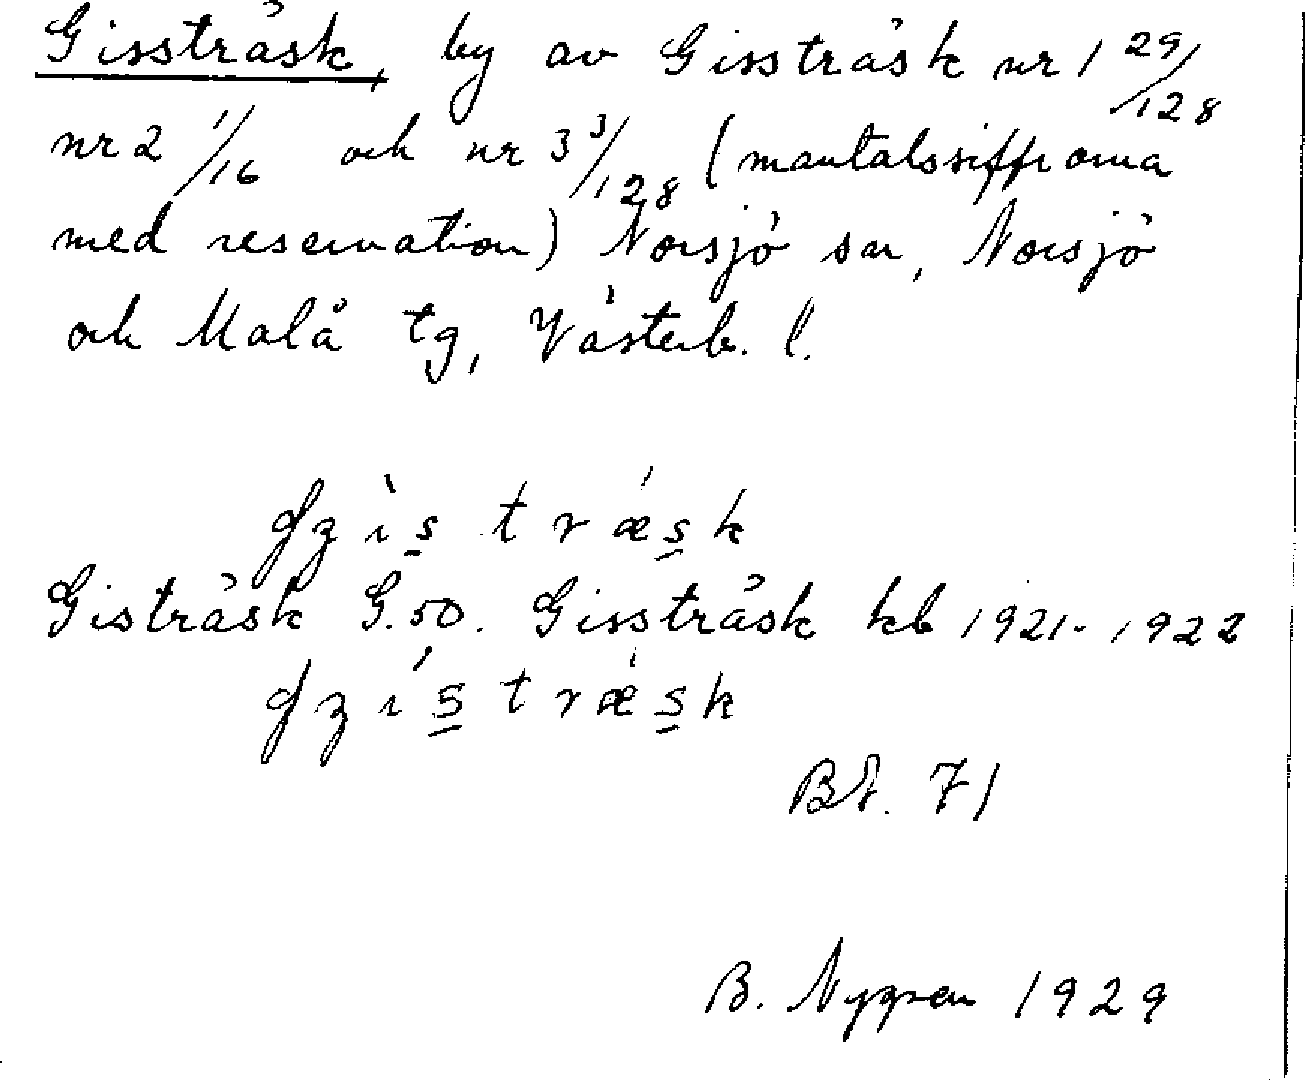 Gissträsk, by av Gissträsk nr 1 29/128
nr 2 1/16 och nr 3 3/128 (mantalssiffrorna
med reservation) Norsjö sn, Norsjö
och Malå tg, Västerb. l.
träsk
Gisträsk G.50. Gissträsk kb 1921-1922
träsk
71
B. Nygren 1929